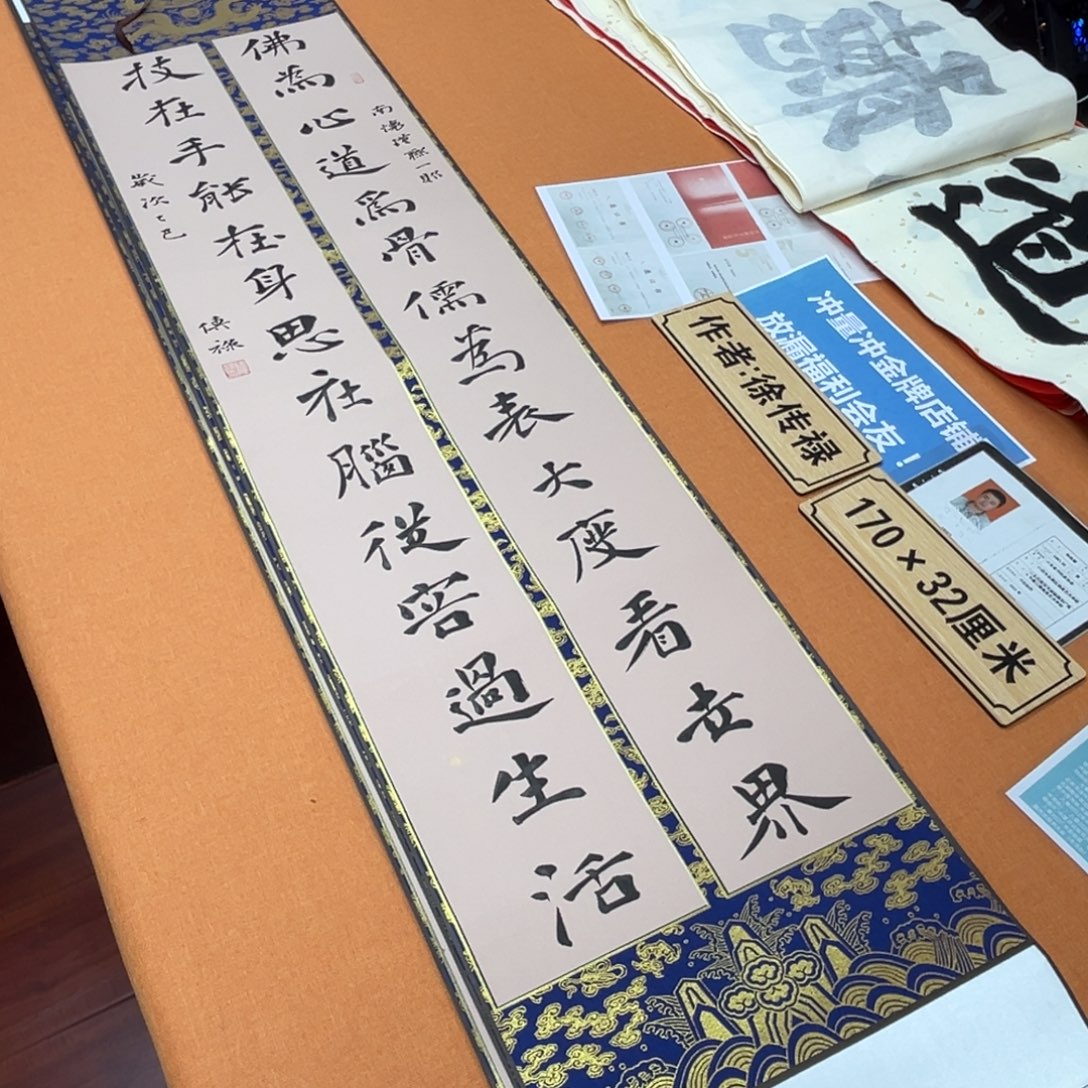 佛為心道為骨儒為表大度看世界
南懷瑾聯一那
技在手能在身思在腦從容過生活
歲次乙巳
傳祿
道
冲量冲金牌店铺
放漏福利会友！
作者:徐传禄
170×32厘米